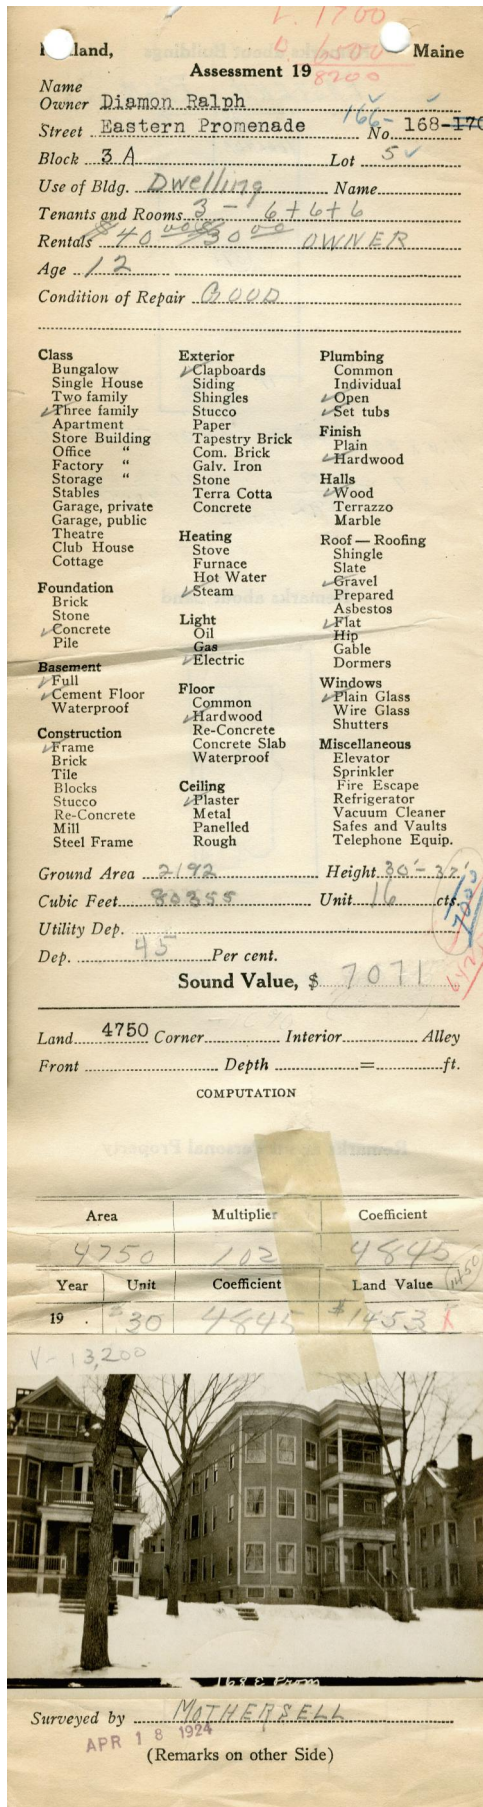 L. 1700
B. 6500
8200
land, Maine
Assessment 19
Name
Owner Diamon Ralph
166-
Street Eastern Promenade No. 168-170
Block 3 A Lot 5
Use of Bldg. Dwelling Name
Tenants and Rooms 3 - 6+6+6
Rentals $40 00 & 30 00 OWNER
Age 12
Condition of Repair GOOD
Class
Bungalow
Single House
Two family
✓Three family
Apartment
Store Building
Office "
Factory "
Storage "
Stables
Garage, private
Garage, public
Theatre
Club House
Cottage
Foundation
Brick
Stone
✓Concrete
Pile
Basement
✓Full
✓Cement Floor
Waterproof
Construction
✓Frame
Brick
Tile
Blocks
Stucco
Re-Concrete
Mill
Steel Frame
Exterior
✓Clapboards
Siding
Shingles
Stucco
Paper
Tapestry Brick
Com. Brick
Galv. Iron
Stone
Terra Cotta
Concrete
Heating
Stove
Furnace
Hot Water
✓Steam
Light
Oil
Gas
✓Electric
Floor
Common
✓Hardwood
Re-Concrete
Concrete Slab
Waterproof
Ceiling
✓Plaster
Metal
Panelled
Rough
Plumbing
Common
Individual
✓Open
✓Set tubs
Finish
Plain
✓Hardwood
Halls
✓Wood
Terrazzo
Marble
Roof — Roofing
Shingle
Slate
✓Gravel
Prepared
Asbestos
✓Flat
Hip
Gable
Dormers
Windows
✓Plain Glass
Wire Glass
Shutters
Miscellaneous
Elevator
Sprinkler
Fire Escape
Refrigerator
Vacuum Cleaner
Safes and Vaults
Telephone Equip.
Ground Area 2192 Height 30'-37'
Cubic Feet 80355 Unit 16 cts.
Utility Dep.
Dep. 45 Per cent.
Sound Value, $ 7071
Land 4750 Corner Interior Alley
Front Depth = ft.
COMPUTATION
Area Multiplier Coefficient
4750 102 4845
Year Unit Coefficient Land Value 1450
19 . $30 4845 $1453 X
V-13,200
168 E Prom
Surveyed by MOTHERSELL
APR 18 1924
(Remarks on other Side)